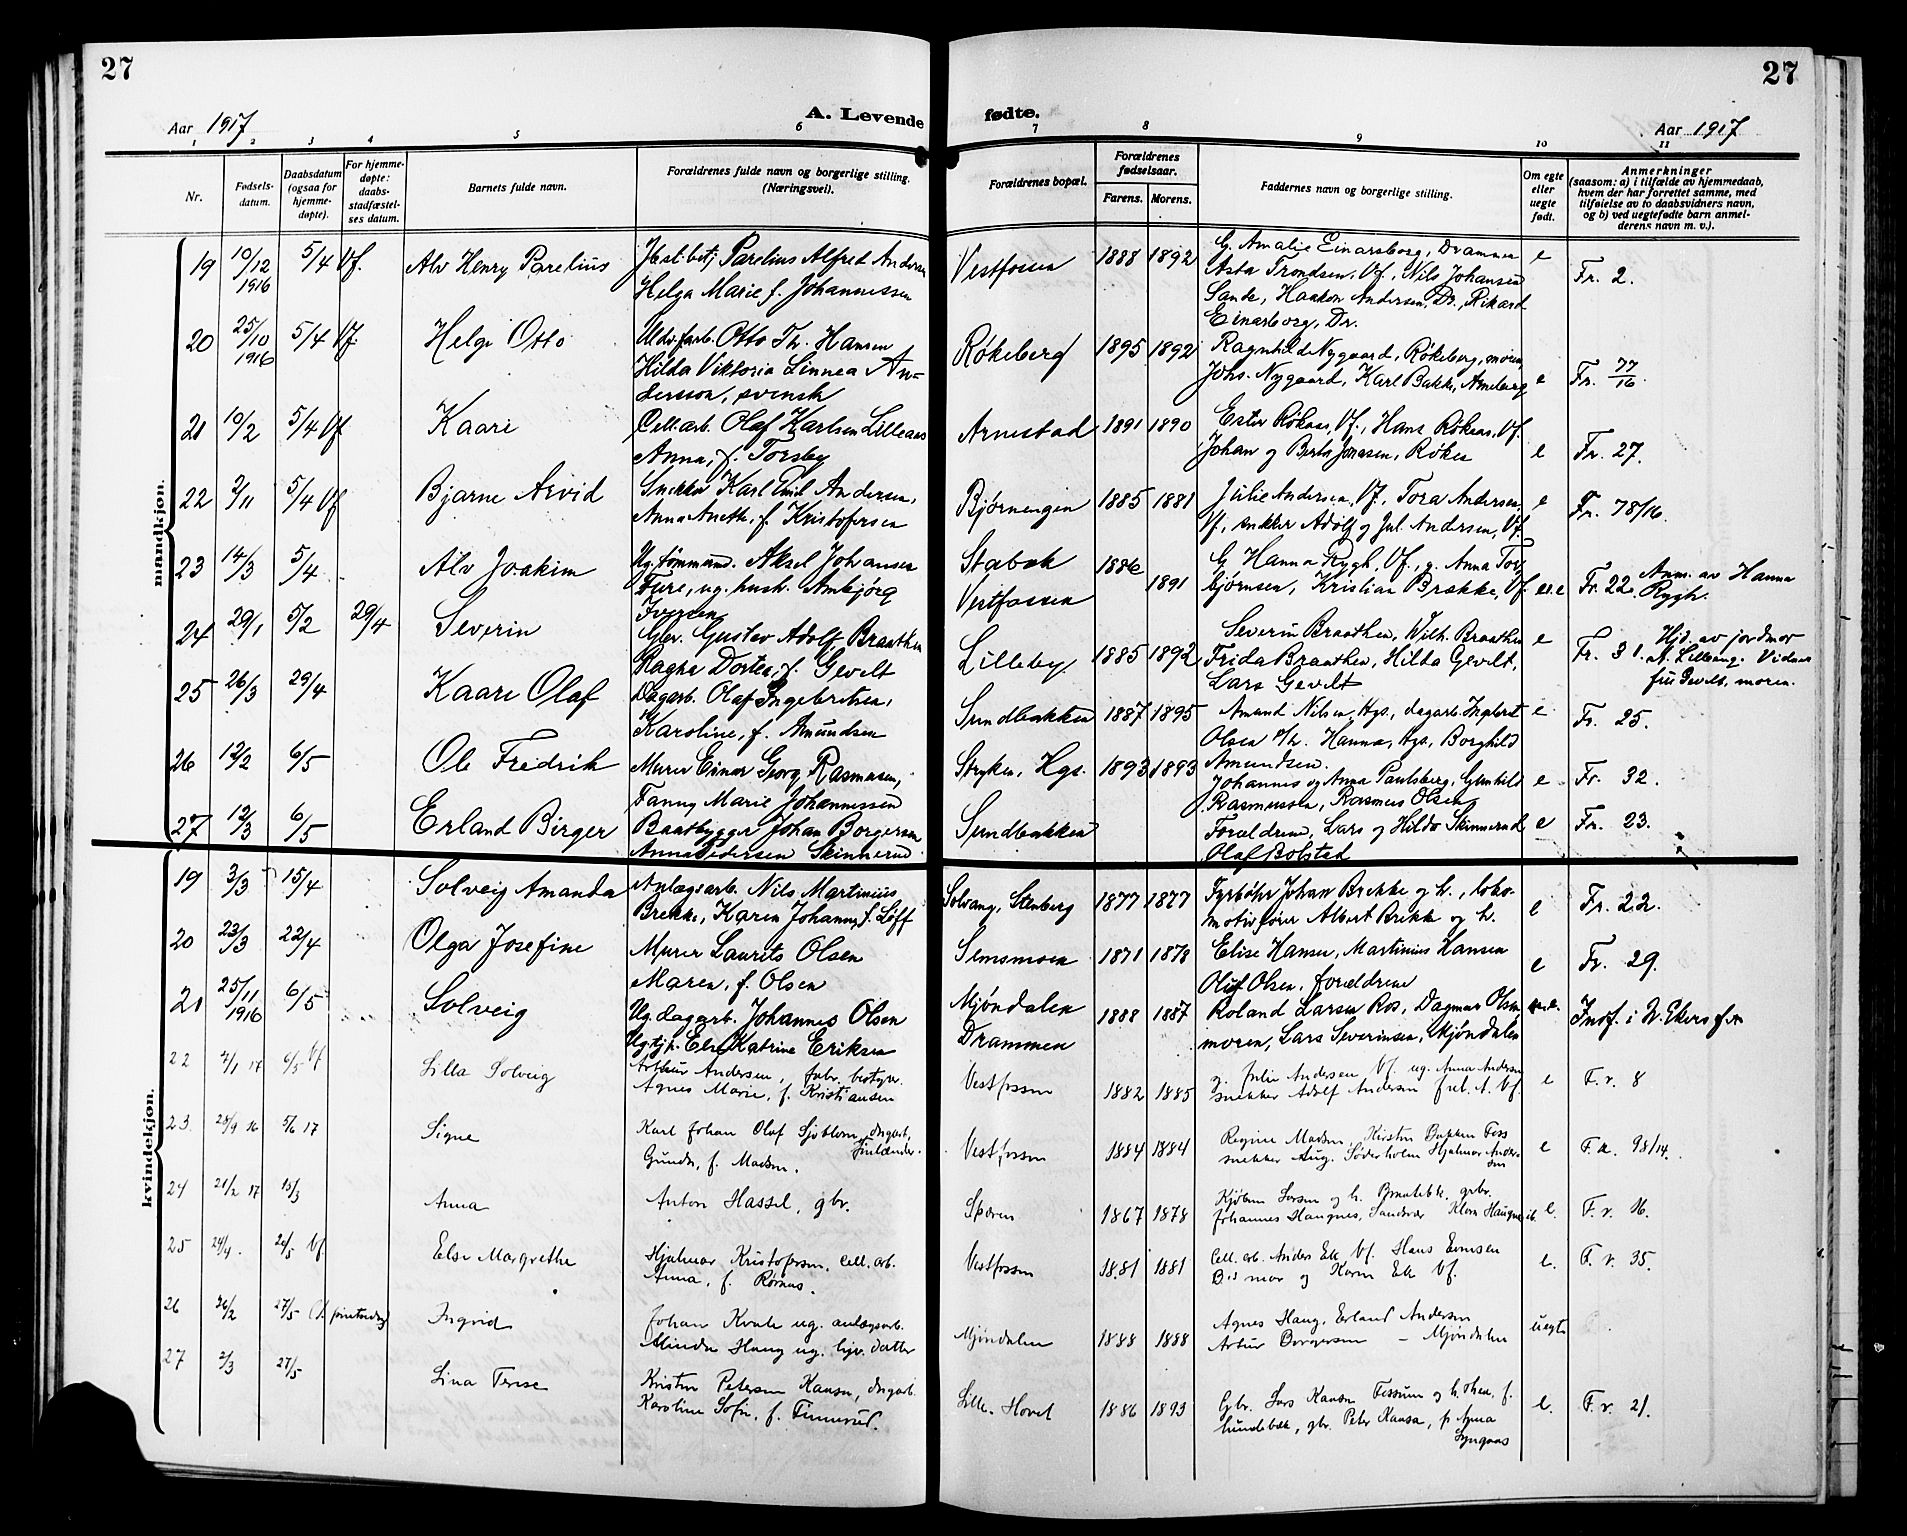 27
27
Aar 1917
A. Levende
fødte.
Aar 1917
1 2 3 4 5 6 7 8 9 10 11
Nr.
Fødsels-
datum.
Daabsdatum
(ogsaa for
hjemme-
døpte).
For hjemme-
døpte:
daabs-
stadfæstel-
ses datum.
Barnets fulde navn.
Forældrenes fulde navn og borgerlige stilling.
(Næringsvei).
Forældrenes bopæl.
Forældrenes
fødselsaar.
Farens. Morens.
Faddernes navn og borgerlige stilling.
Om egte
eller
uegte
født.
Anmerkninger
(saasom: a) i tilfælde av hjemmedaab,
hvem der har forrettet samme, med
tilføielse av to daabsvidners navn,
og b) ved uegtefødte barn anmel-
derens navn m. v.).
mandkjøn.
19 10/12 1916 5/4 Vf. Alv Henry Parelius Parelius Alfred Andersen Vestfossen 1888 1892 G. Amalie Einarsborg, Drammen e Fr. 2.
Helga Marie f. Johannessen Asta Trondsen, Vf., Nils Johansen
Sande, Haakon Andersen, Dr., Rikard
Einarsborg, Dr.
20 25/10 1916 5/4 Vf. Helge Otto Otto Th. Hansen Røkeberg 1895 1892 Ragnhild Nygaard, Røkeberg, moren,
Hilda Viktoria Linnea An- Johs. Nygaard, Karl Bakke, e Fr. 77/16.
dersson, svensk
21 10/2 5/4 Vf Kaare Cell.arb. Olaf Karlsen Lilleaas Arnestad 1891 1890 Ester Røkaas, Vf., Hans Røkaas, Vf.
Anna, f. Torsby Johan og Berta Jonasen, Røken e Fr. 27.
22 2/11 5/4 Vf Bjarne Arvid Snekker Karl Emil Andersen, Bjørnengen 1885 1881 Julie Andersen, Vf, Tora Andersen, e Fr. 78/16.
Anna Aneth, f. Kristofersen Vf, snekker Adolf og Jul. Andersen, Vf.
23 14/3 5/4 Alv Joakim Ug. tømmerm. Aksel Johansen Stabæk 1886 G. Hanna Rygh, Vf., g. Anna Tor-
Fure, ug. hush. Ambjørg Vestfossen 1891 bjørnsen, Kristian Brække, Vf. u.e Fr. 22. Anm. av Hanna
Iversen Rygh.
24 29/1 5/2 29/4 Severin Gbr. Gustav Adolf Braathen Lilleby 1885 1892 Severin Braathen, Wilh. Braathen e Fr. 31. Hjd. av jordmor
Ragna Dortea, f. Gevelt Frida Braathen, Hilda Gevelt, Vidner
Lars Gevelt fru Gevelt, moren.
25 26/3 29/4 Kaare Olaf Dagarb. Olaf Ingebretsen, Sundbakken 1887 1895 Amund Nilsen, Hgs., dagarb. Ingebret e. Fr. 25.
Karoline, f. Amundsen Olsen Hanna, Hgs., Borghild
Amundsen.
26 12/2 6/5 Ole Fredrik Murer Einar Georg Rasmusen, Stryken, Hgs. 1893 1893 Johannes og Anna Paulsberg, Gunhild e Fr. 32.
Fanny Marie Johannessen Rasmussen, Rasmus Olsen
27 12/3 6/5 Erland Birger Baatbygger Johan Borgersen Sundbakken Forældrene, Lars og Hilda Skinnerud e Fr. 23.
Anna Pedersen Skinnerud Olaf Bolstad
kvindekjøn.
19 3/3 15/4 Solveig Amanda Anlægsarb. Nils Martinius Solvang, Stenberg 1877 1877 Fyrbøter Johan Brekke og h., loko-
Brekke, Karen Johanne, f. Løff motivfører Albert Brekke og h. e Fr. 22.
20 23/3 22/4 Olga Josefine Murer Laurits Olsen Semsmoen 1871 1878 Elise Hansen, Martinius Hansen
Maren, f. Olsen Oluf Olsen, forældrene e Fr. 29.
21 25/11 1916 6/5 Solveig Ug. dagarb. Johannes Olsen Mjøndalen 1888 1887 Roland Larsen Ros, Dagmar Olsen u.e. Indf. i N. Ekers
Ug. tjp. Else Katrine Eriksen Drammen moren, Lars Severinsen, Mjøndalen
22 2/1 17 6/5 Vf Lilla Solveig Arthur Andersen, fabr. bestyr. Vestfossen 1882 1885 g. Julie Andersen Vf. ug. Anna Andersen e F.r. 8
Agnes Marie, f. Kristiansen snekker Adolf Andersen Jul. A. Vf.
23 25/9 16 5/6 17 Signe Karl Johan Olaf Sjøblom, dagarb., Vestfossen 1884 1884 Regine Madsen, Kirsten Bakken Foss e F.r. 98/14.
finlænder. Gunda, f. Madsen. snekker Aug. Söderholm Hjalmar Ander-
sen
24 21/2 17 15/3 Anna Anton Hassel, gbr. Skaren 1867 1878 Johannes Haugnes, Sandsvær e. F.r. 16.
25 24/4. 20/5 Vf. Else Margrethe Hjalmar Kristofersen, cell. arb. Vestfossen 1881 1881 Cell. arb. Anders Ek Vf. Hans Evensen e. F.r. 35.
Anna, f. Rørnas. og Karen Ek Vf.
26 26/2 27/5 Ingrid Johan Kvale ug. anlægsarb. Mjøndalen 1888 1888 Agnes Haug, Erland Andersen uegte
Minda Haug ug. hjv. datter Artur Borgersen – Mjøndalen
27 2/3 27/5 Lina Terese Kristen Petersen Hansen, dagarb. Lille-Hovet 1886 1893 Gbr. Lars Hansen Fossum og h. f. e. F.r. 21.
Karoline Sofie, f. Finnerud. Lundebæk, gbr. Peter Hansen, p Agna
Lyngaas